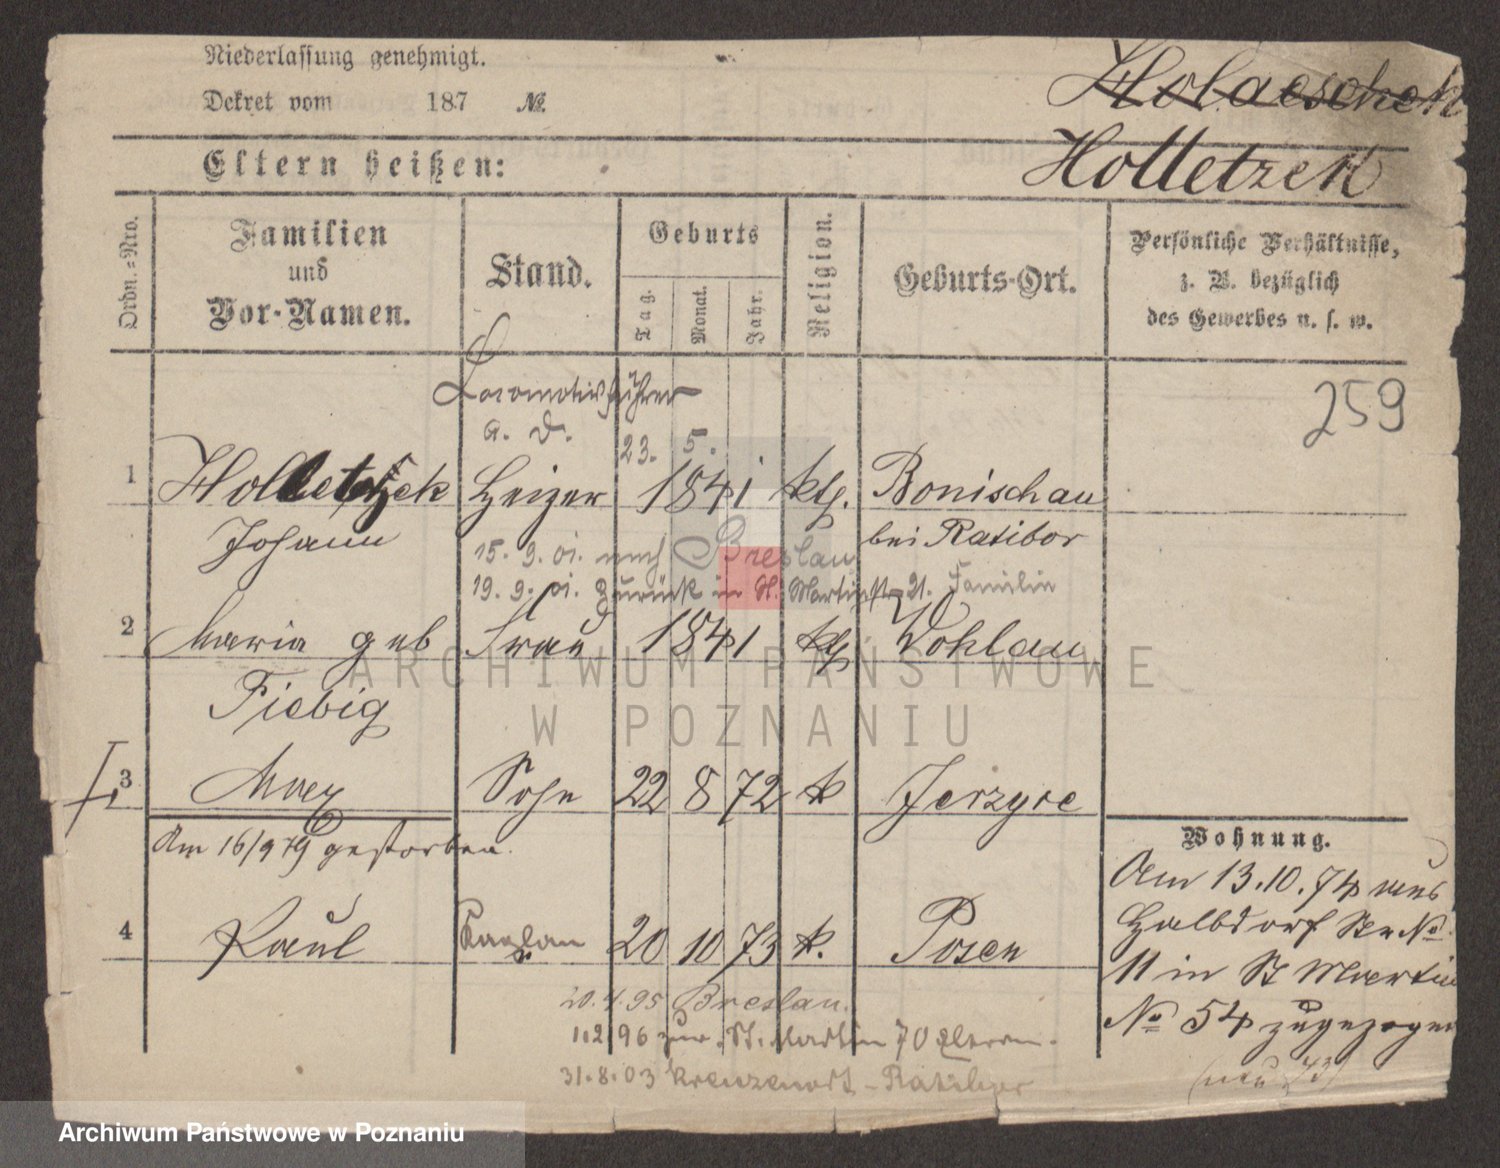 Niederlassung genehmigt.
Dekret vom 187 №
Holaeschek
Eltern heißen:
Holletzek
Ordn.-Nro.
Familien und Vor-Namen.
Stand.
Geburts
Tag. Monat. Jahr.
Religion.
Geburts-Ort.
Persönliche Verhältnisse,
z. B. bezüglich
des Gewerbes u. s. w.
259
Locomotivführer
a. D. 23. 5.
1 Holletzek Heizer 1841 kth. Bonischau
Johann bei Ratibor
15. 9. 01. nach Breslau
19. 9. 01. zurück in St. Martinstr. 21. Familie
2 Maria geb Frau 1841 kth Wohlau
Fiebig
ARCHIWUM PAŃSTWOWE
W POZNANIU
3 Max Sohn 22 8 72 k Jerzyce
Am 16/9 79 gestorben.
4 Paul 20 10 73 k. Posen
20.4.95 Breslau.
1.2 96 zur. St. Martin 70 Eltern.
31.8.03 Kreuzenort - Ratibor
Wohnung.
Am 13.10.74 aus
Halbdorf Str №
11 in St Martin
№ 54 zugezogen
Archiwum Państwowe w Poznaniu